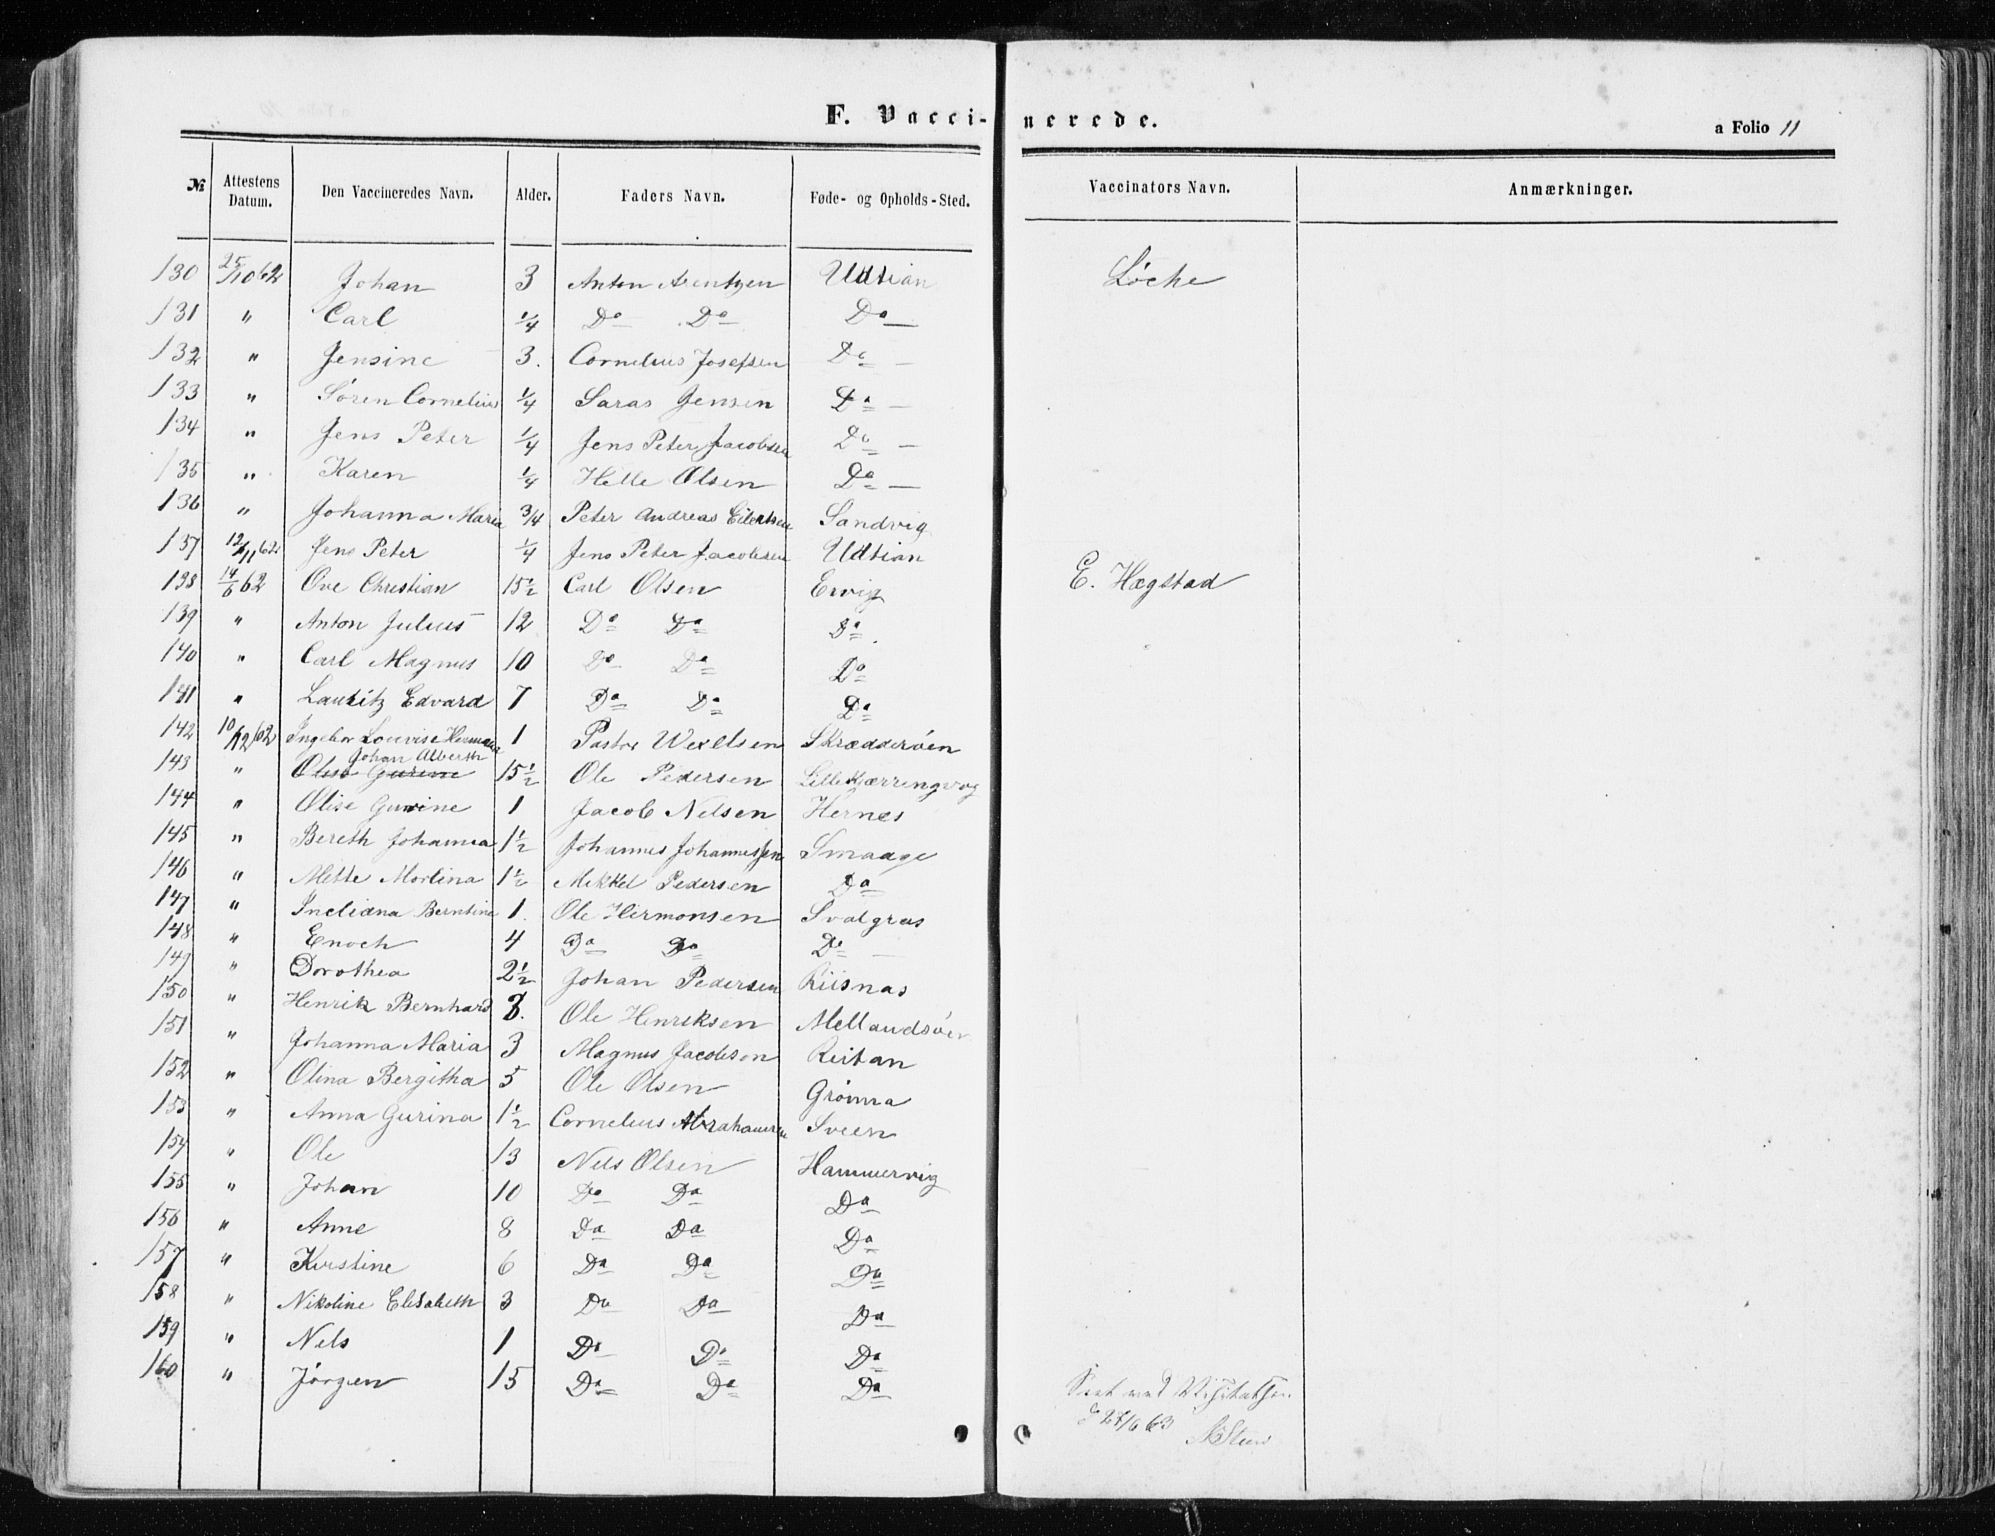 F. Vacci-nerede.
a Folio 11
№ Attestens Datum. Den Vaccineredes Navn. Alder. Faders Navn. Føde- og Opholds-Sted. Vaccinators Navn. Anmærkninger.
130 25/10 62 Johan 3 Anton Arentzen Udtian Løche
131 " Carl 1/4 Do Do Do
132 " Jensine 3. Cornelius Josefsen Do
133 " Søren Cornelius 1/4 Saras Jensen Do
134 " Jens Peter 1/4 Jens Peter Jacobsen Do
135 " Karen 1/4 Helle Olsen Do
136 " Johanna Maria 3/4 Peter Andreas Eilertsen Sandvig
137 12/11 62 Jens Peter 1/4 Jens Peter Jacobsen Udtian
138 14/6 62 Ove Christian 15 1/2 Carl Olsen Ervig E. Hægstad
139 " Anton Julius 12 Do Do Do
140 " Carl Magnus 10 Do Do Do
141 " Lauritz Edvard 7 Do Do Do
142 10/12 62 Ingebor Lovise 1 Pastor Wexelsen Skrædderøen
143 " Johan Alberth 15 1/2 Ole Pedersen Lille Kjærringvog
144 " Olise Gurine 1 Jacob Nelsen Hernes
145 " Bereth Johanna 1 1/2 Johannes Johannessen Smaage
146 " Mette Martina 1 1/2 Mekkel Pedersen Do
147 " Ineliana Berntine 1. Ole Hermonsen Svalgras
148 " Enoch 4 Do Do Do
149 " Dorothea 2 1/2 Johan Pedersen Riisnas
150 " Henrik Bernhard 8. Ole Henriksen Mellandsøen
151 " Johanna Maria 3 Magnus Jacobson Reitan
152 " Olina Bergitha 5 Ole Olsen Grønna
153 " Anna Gurina 1 1/2 Cornelius Abrahamsen Sveen
154 " Ole 13 Nels Olsen Hammervig
155 " Johan 10 Do Do Do
156 " Anne 8 Do Do Do
157 " Kirstine 6 Do Do Do
158 " Nikoline Elisabeth 3 Do Do Do
159 " Nels 1 Do Do Do
160 " Jørgen 15 Do Do Do
Seet ved Visitatsen
d 27/6 63